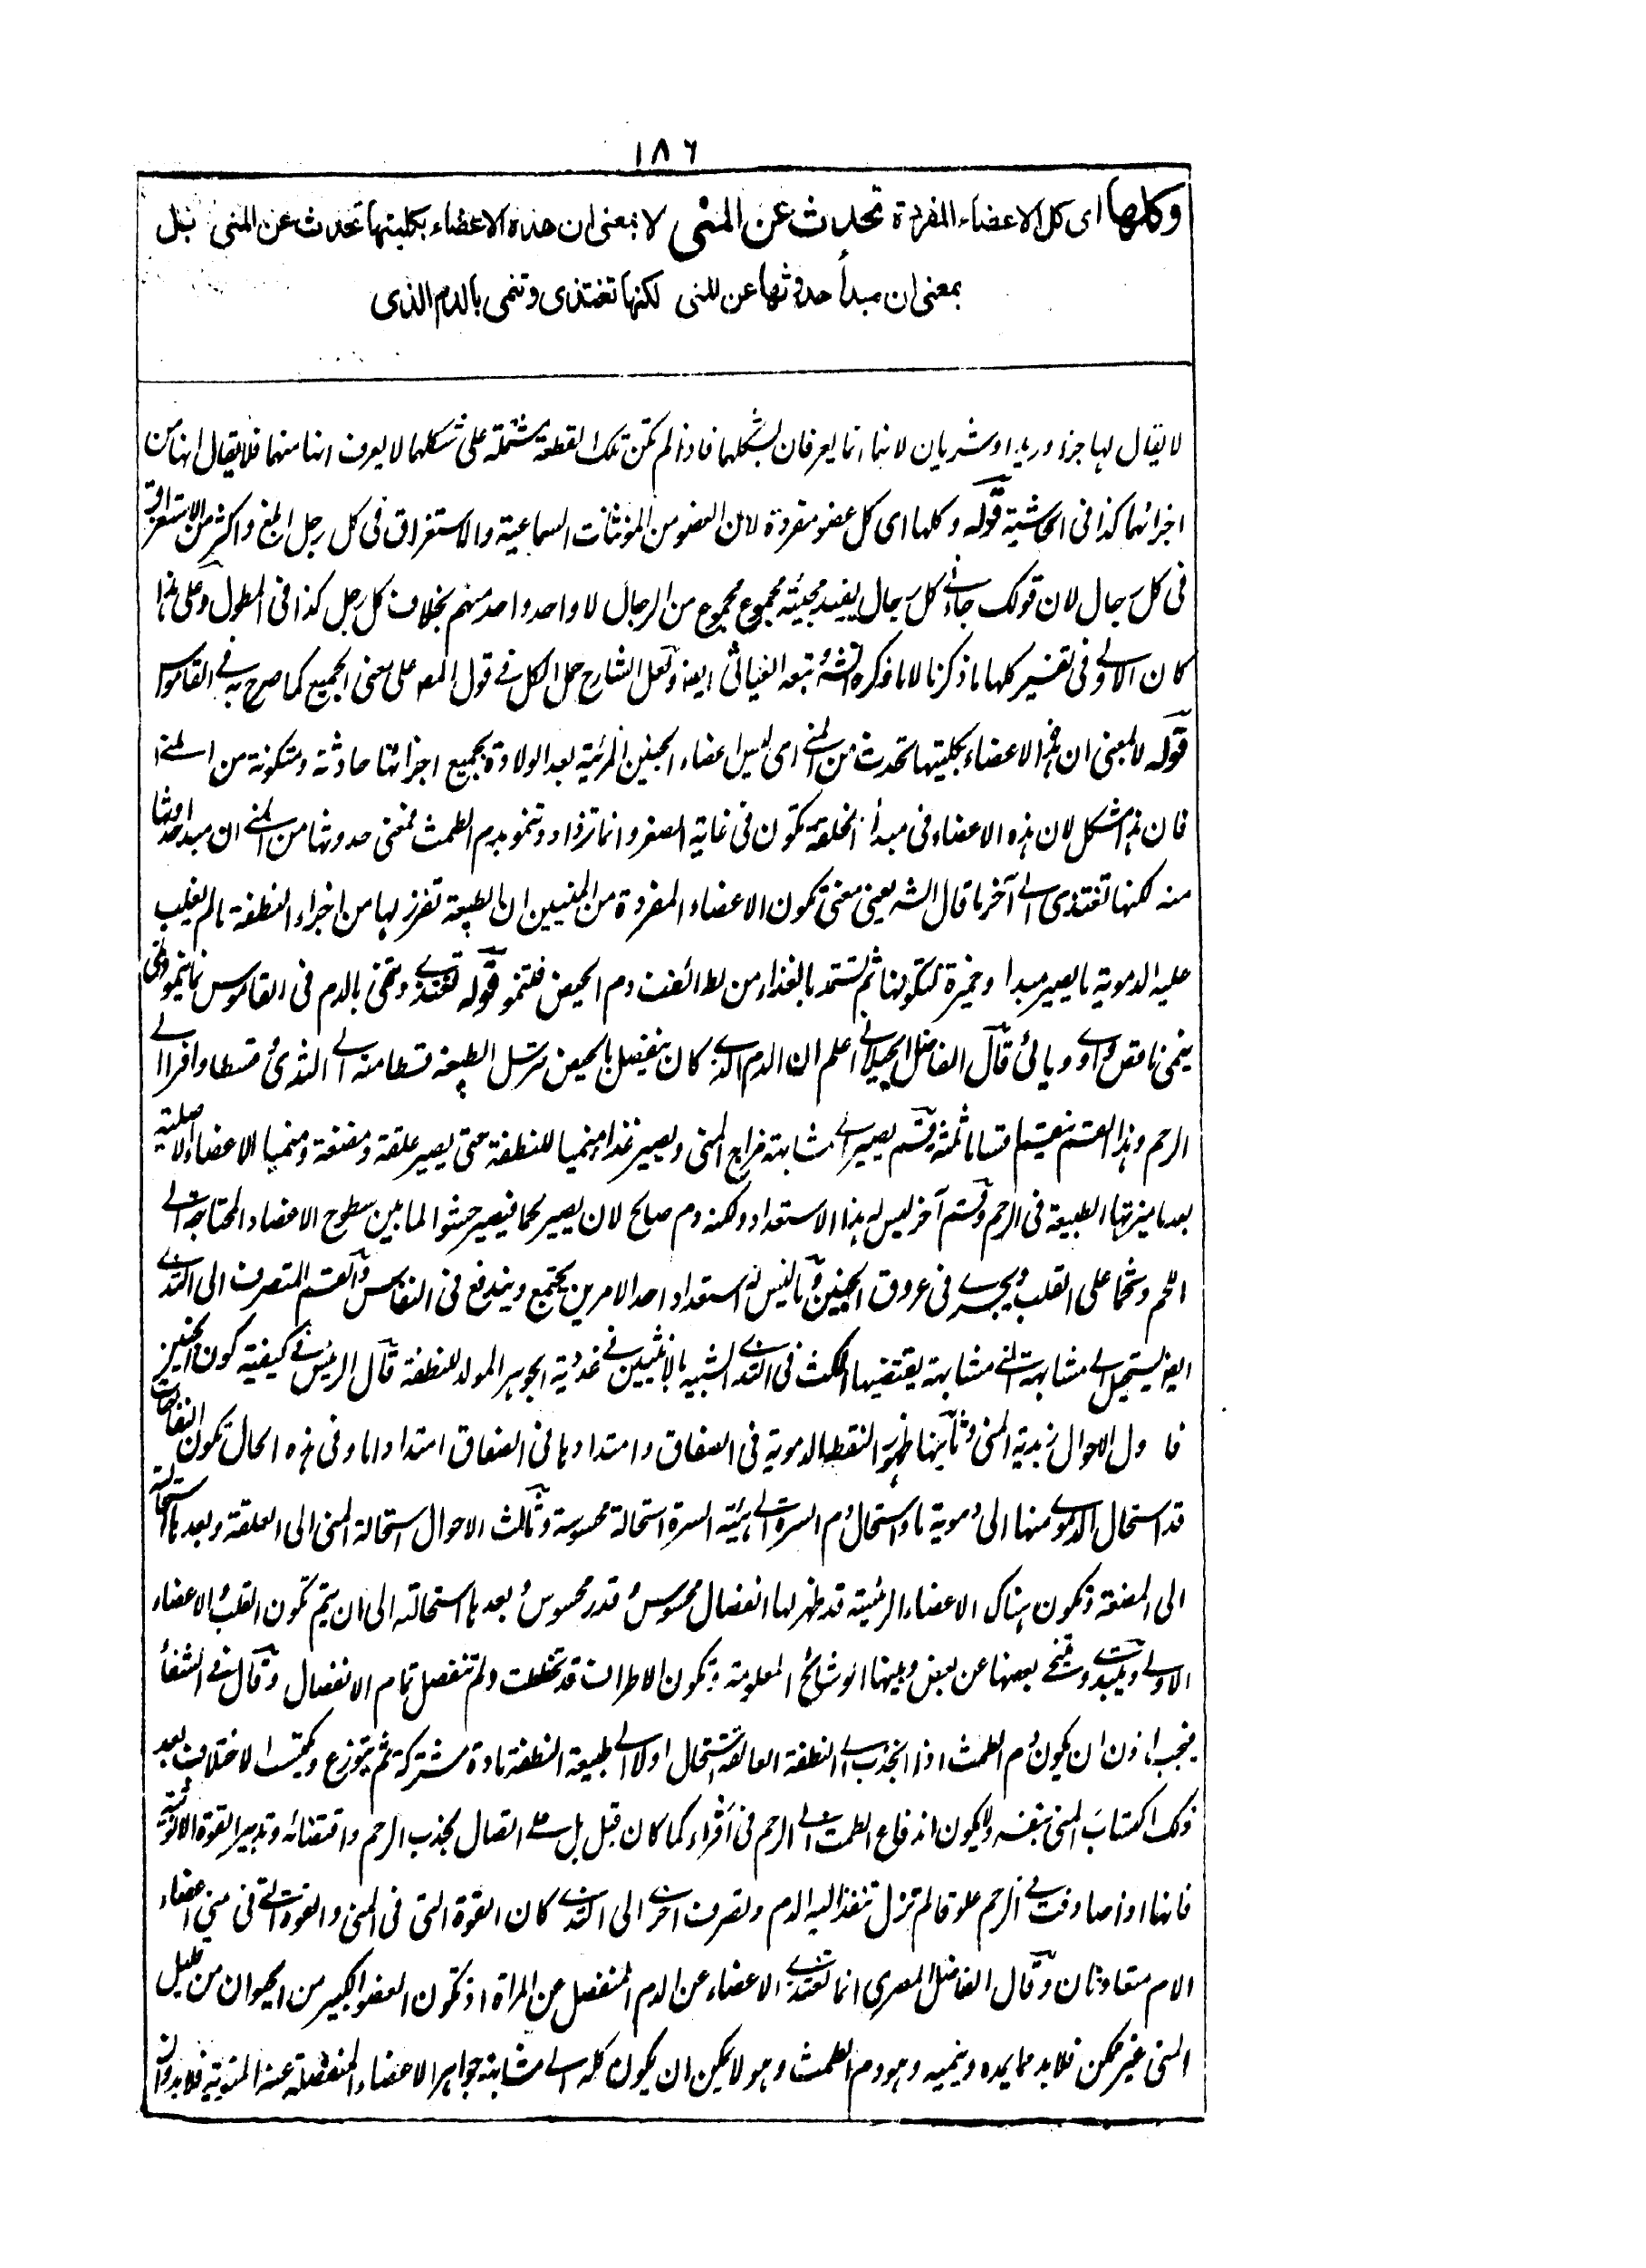 ١٨٦
وكلها اى كل الاعضاء المفردة تحدث عن المنى لا بمعنى ان هذه الاعضاء بكليتها تحدث عن المنى بل
بمعنى ان مبدأ حدوثها عن المنى لكنها تغتذى وتنمى بالدم الذى
لا يقال لها جزء وريد او شريان لانهما انما يعرفان بشكلهما فاذا لم تكن تلك القطعة مشتملة على شكلهما لا يعرف انها منهما فلا يقال انها من
اجزائها كذا فى الحاشية قوله وكلها اى كل عضو مفردة لان العضو من المؤنثات السماعية والاستغراق فى كل رجل ابلغ واكثر من الاستغراق
فى كل رجال لان قولك جاءنى كل رجال يفيد مجيئة مجموع مجموع من الرجال لا واحد واحد منهم بخلاف كل رجل كذا فى المطول وعلى هذا
كان الاولى فى تفسير كلها ما ذكرنا لا ما ذكره الشه تبعه الغياثى ايضا ولعل الشارح حمل الكل فى قول المصـ على معنى الجميع كما صرح به فى القاموس
قوله لا بمعنى ان هذه الاعضاء بكليتها تحدث من المنى اى ليس اعضاء الجنين المرئية بعد الولادة بجميع اجزائها حادثة ومتكونة من المنى
فان هذا مشكل لان هذه الاعضاء فى مبدأ الخلقة تكون فى غاية الصغر وانما تزداد وتنمو بدم الطمث فمعنى حدوثها من المنى ان مبدأ حدوثها
منه لكنها تغتذى الى آخر ما قال الشه يعنى معنى تكون الاعضاء المفردة من المنيين ان الطبيعة تفرز لها من اجزاء النطفة ما لم يغلب
عليه الدموية ما يصير مبدا وخميرة لتكونها ثم تستمد بالغذاء من لطائف دم الحيض فتنمو قوله تغتذى وتنمى بالدم فى القاموس نما ينمو ونمى
ينمى ناقص واوى ويائى قال الفاضل الجيلانى اعلم ان الدم الذى كان ينفصل بالحيض ترسل الطبيعة قسطا منه الى الثدى وقسطا وافرا الى
الرحم وهذا القسم ينقسم اقساما ثلثة قسم يصير الى مشابهة مزاج المنى ويصير غذاء منميا للنطفة حتى يصير علقة ومضغة ومنميا للاعضاء الاصلية
بعد ما ميزتها الطبيعة فى الرحم وقسم آخر ليس له هذا الاستعداد ولكنه دم صالح لان يصير لحما فيصير حشوا لما بين سطوح الاعضاء المحتاجة الى
اللحم وشحما على القلب ويجرى فى عروق الجنين وما ليس له استعداد احد الامرين يجتمع ويندفع فى النفاس والقسم المتصرف الى الثدى
ايضا يستحيل الى مشابهة المنى مشابهة يقتضيها المكث فى الثدى الشبيه بالانثيين فى غددية الجوهر المولد للنطفة قال الرئيس فى كيفية كون الجنين
فاول الاحوال زبدية المنى وثانيها ظهور النقط الدموية فى الصفاق وامتدادها فى الصفاق امتدادا ما وفى هذه الحال تكون النفاخات
قد استحال الدموى منها الى دموية ما واستحال دم السرة الى هيئة السرة استحالة محسوسة وثالث الاحوال استحالة المنى الى العلقة وبعدها استحالته
الى المضغة وتكون هناك الاعضاء الرئيسة قد ظهر لها انفصال محسوس وقدر محسوس وبعدها استحالته الى ان يتم تكون القلب والاعضاء
الاولى ويتبدى وتتنحى بعضها عن بعض وبينها الوشائج المعلومة وتكون الاطراف قد تخططت ولم تنفصل تمام الانفصال وقال فى الشفاء
فيجب اذن ان يكون دم الطمث اذا انجذب الى النطفة العالقة استحال اولا الى طبيعة النطفة مادة مشتركة ثم يتوزع ويكتسب الاختلاف بعد
ذلك اكتساب المنى بنفسه ولا يكون اندفاع الطمث الى الرحم فى أقراء كما كان قبل بل على اتصال بجذب الرحم واقتضائه وتدبير القوة الانوثية
فانها اذا صادفت فى الرحم علوقا لم تزل تنفذ اليه الدم وتصرف اخرى الى الثدى كان القوة التى فى المنى والقوة التى فى منى اعضاء
الام متعاونتان وقال الفاضل المصرى انما تغتذى الاعضاء عن الدم المنفصل عن المراة اذ تكون العضو الكبير من الحيوان من قليل
المنى غير ممكن فلا بد مما يمده وينميه وهو دم الطمث وهو لا يمكن ان يكون كله الى مشابهة جواهر الاعضاء المنفصلة عنه المنوية فلا بد وان